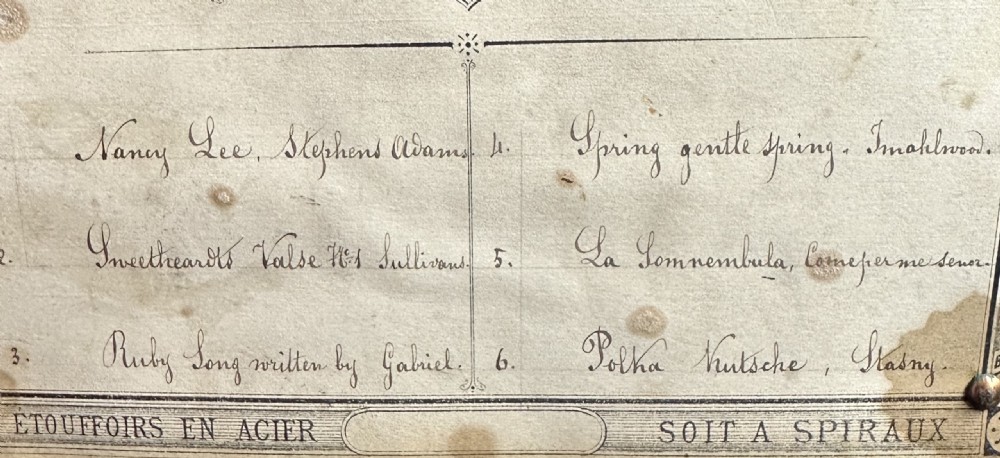 Nancy Lee, Stephens Adams.
2. Sweetheardts Valse No 1 Sullivans.
3. Ruby Song written by Gabriel.
4. Spring gentle spring. Imahlwood.
5. La Somnembula, Come per me senor.
6. Polka Kutsche, Stasny.
ETOUFFOIRS EN ACIER
SOIT A SPIRAUX